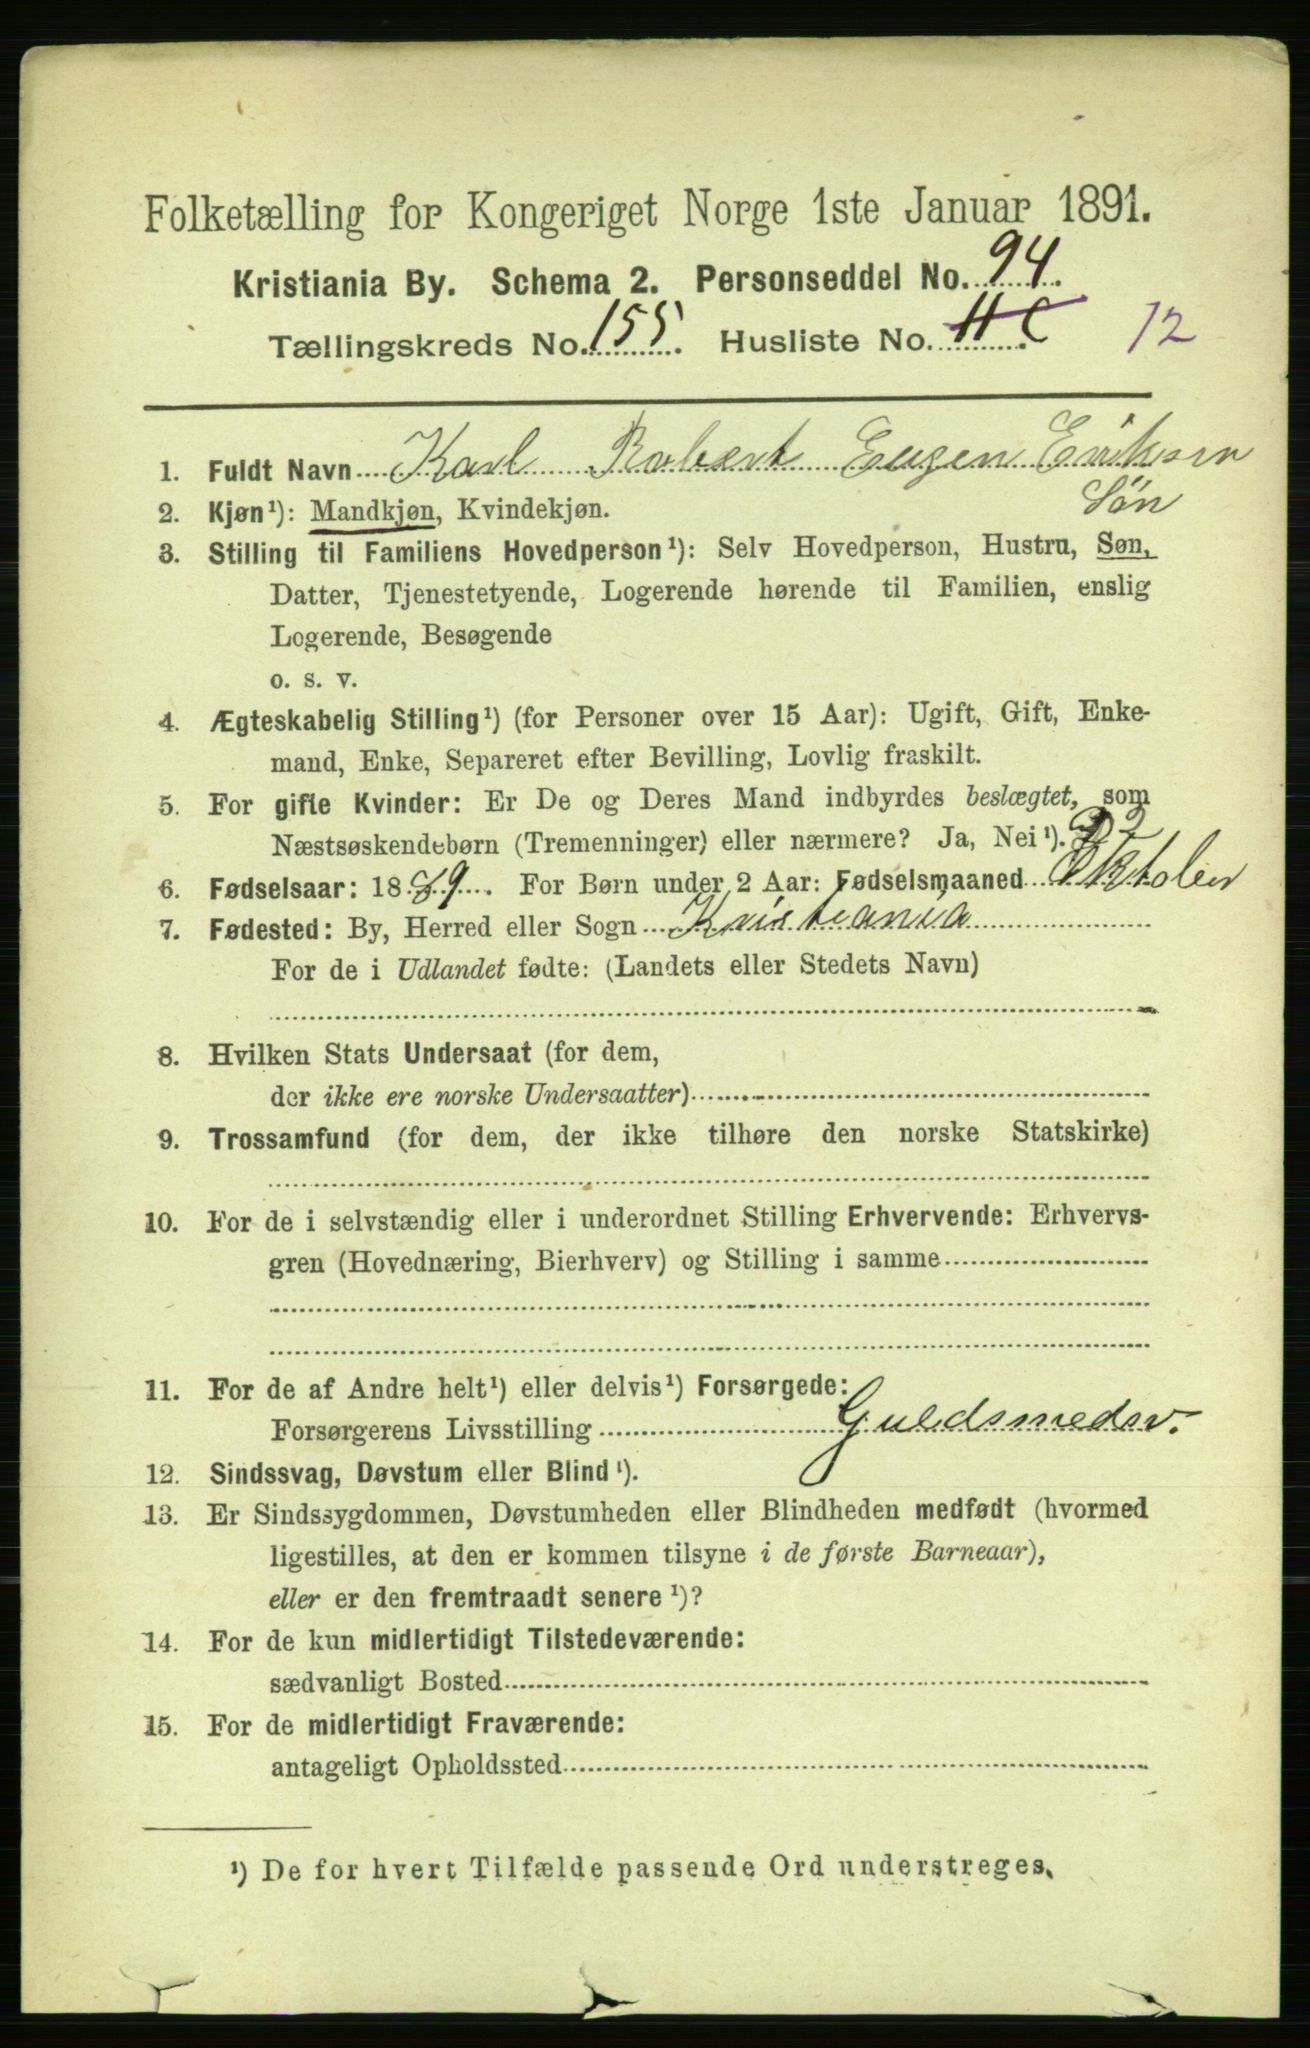 Folketælling for Kongeriget Norge 1ste Januar 1891.
Kristiania By. Schema 2. Personseddel No. 94.
Tællingskreds No. 155. Husliste No. 12
1. Fuldt Navn Karl Robert Eugen Eriksen
Søn
2. Kjøn¹): Mandkjøn, Kvindekjøn.
3. Stilling til Familiens Hovedperson¹): Selv Hovedperson, Hustru, Søn,
Datter, Tjenestetyende, Logerende hørende til Familien, enslig
Logerende, Besøgende
o. s. v.
4. Ægteskabelig Stilling¹) (for Personer over 15 Aar): Ugift, Gift, Enke-
mand, Enke, Separeret efter Bevilling, Lovlig fraskilt.
5. For gifte Kvinder: Er De og Deres Mand indbyrdes beslægtet, som
Næstsøskendebørn (Tremenninger) eller nærmere? Ja, Nei¹).
6. Fødselsaar: 1889. For Børn under 2 Aar: Fødselsmaaned Oktober
7. Fødested: By, Herred eller Sogn Kristiania
For de i Udlandet fødte: (Landets eller Stedets Navn)
8. Hvilken Stats Undersaat (for dem,
der ikke ere norske Undersaatter)
9. Trossamfund (for dem, der ikke tilhøre den norske Statskirke)
10. For de i selvstændig eller i underordnet Stilling Erhvervende: Erhvervs-
gren (Hovednæring, Bierhverv) og Stilling i samme
11. For de af Andre helt¹) eller delvis¹) Forsørgede:
Forsørgerens Livsstilling Guldsmedsv.
12. Sindssvag, Døvstum eller Blind¹).
13. Er Sindssygdommen, Døvstumheden eller Blindheden medfødt (hvormed
ligestilles, at den er kommen tilsyne i de første Barneaar),
eller er den fremtraadt senere¹)?
14. For de kun midlertidigt Tilstedeværende:
sædvanligt Bosted
15. For de midlertidigt Fraværende:
antageligt Opholdssted
¹) De for hvert Tilfælde passende Ord understreges.